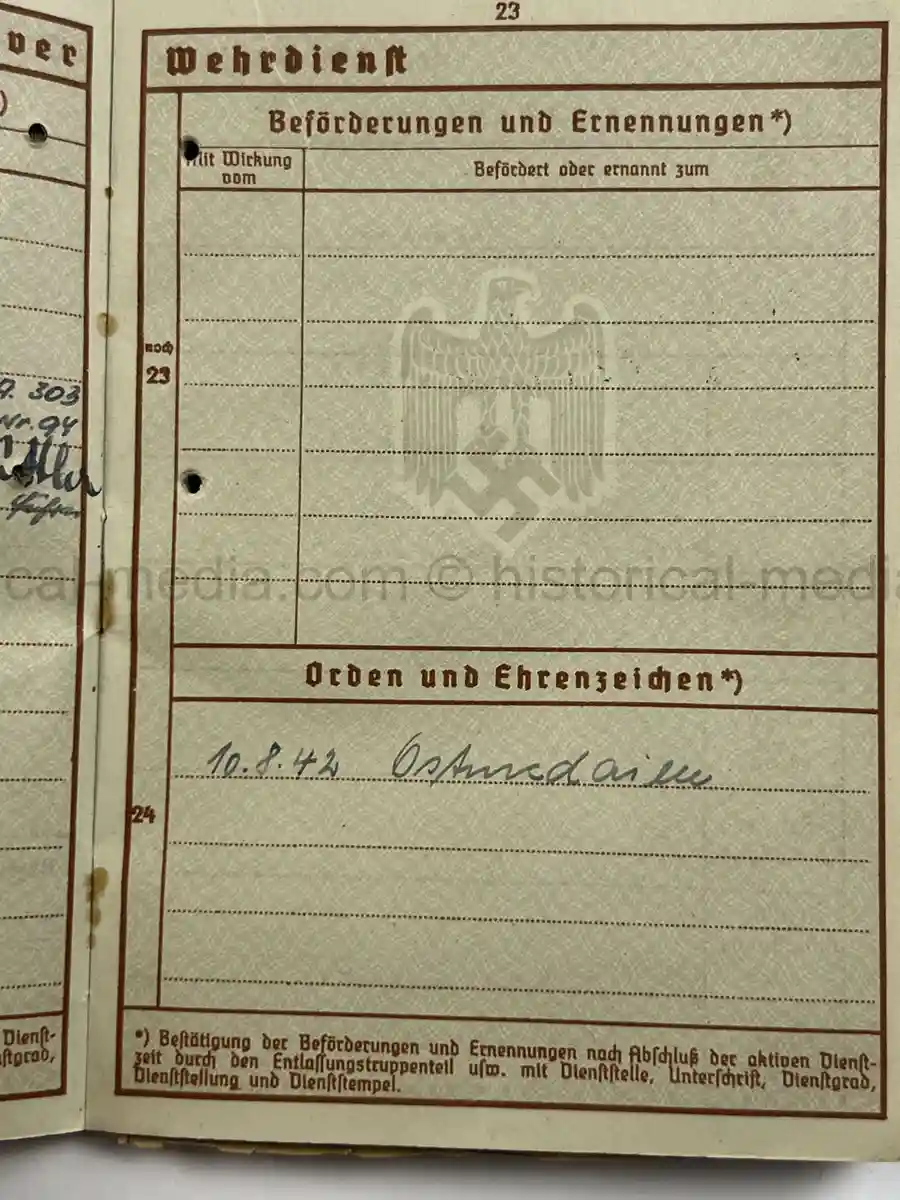 23
ver
)
Wehrdienst
Beförderungen und Ernennungen*)
Mit Wirkung
vom
Befördert oder ernannt zum
noch
23
303
Nr. 94
cal-media.com © historical-media
Orden und Ehrenzeichen*)
10.8.42 Ostmedaille
24
Dienst-
stgrad,
*) Bestätigung der Beförderungen und Ernennungen nach Abschluß der aktiven Dienst-
zeit durch den Entlassungstruppenteil usw. mit Dienststelle, Unterschrift, Dienstgrad,
Dienststellung und Dienststempel.